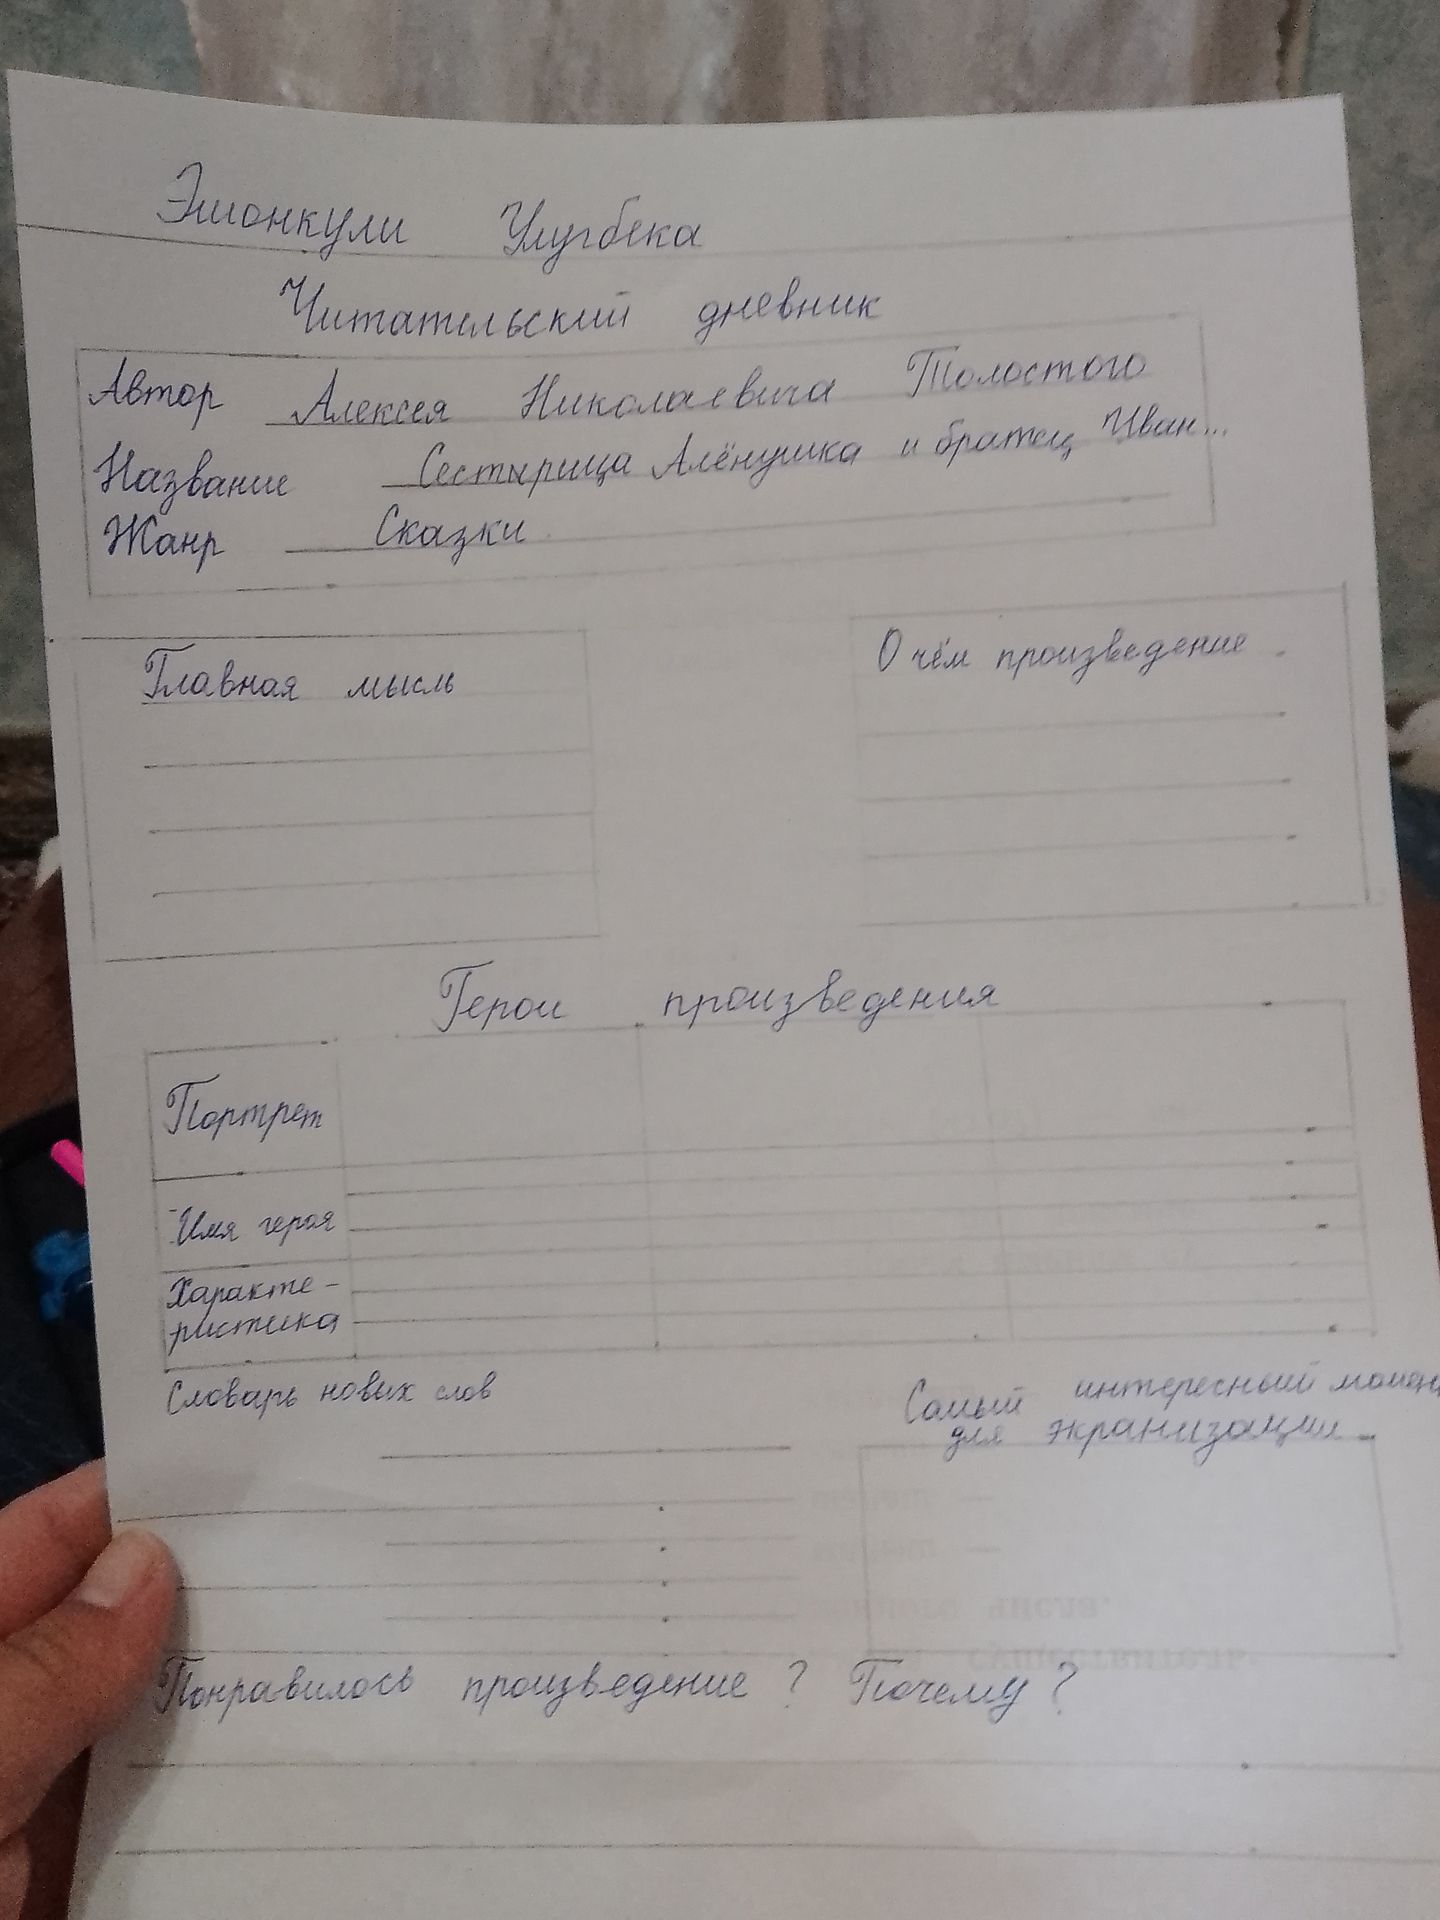 Эшонкули Улугбека
Читательский дневник
Автор Алексея Николаевича Толостого
Название Сестырица Алёнушка и братец Иван...
Жанр Сказки
Главная мысль
О чём произведение
Герои произведения
Портрет
Имя героя
Характе-
ристика
Словарь новых слов
Самый интересный
для экранизации
Понравилось произведение? Почему?